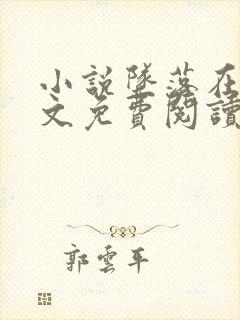 小說隊落在
文免費閱讀
郭雲平